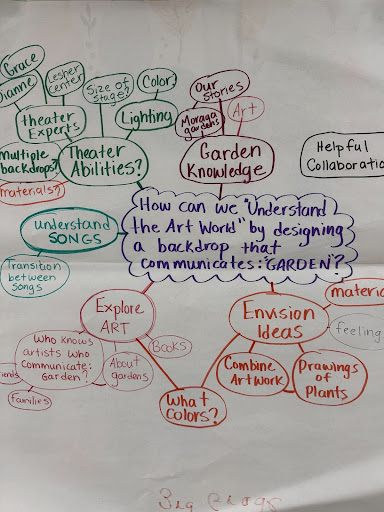 Grace
Dianne
Lesher
Center
Theater
Experts
Size of
Stage?
Color
Lighting
multiple
backdrops?
materials?
Theater
Abilities?
Our
Stories
Art
Moraga
gardens
Garden
Knowledge
Helpful
Collaboratio
understand
SONGS
Transition
between
Songs
How can we "Understand
the Art World" by designing
a backdrop that
communicates: "GARDEN"?
Explore
ART
Books
About
gardens
Who knows
artists who
communicate:
Garden?
families
What
Colors?
Envision
Ideas
materia
feeling
Combine
ArtWork
Drawings
of
Plants